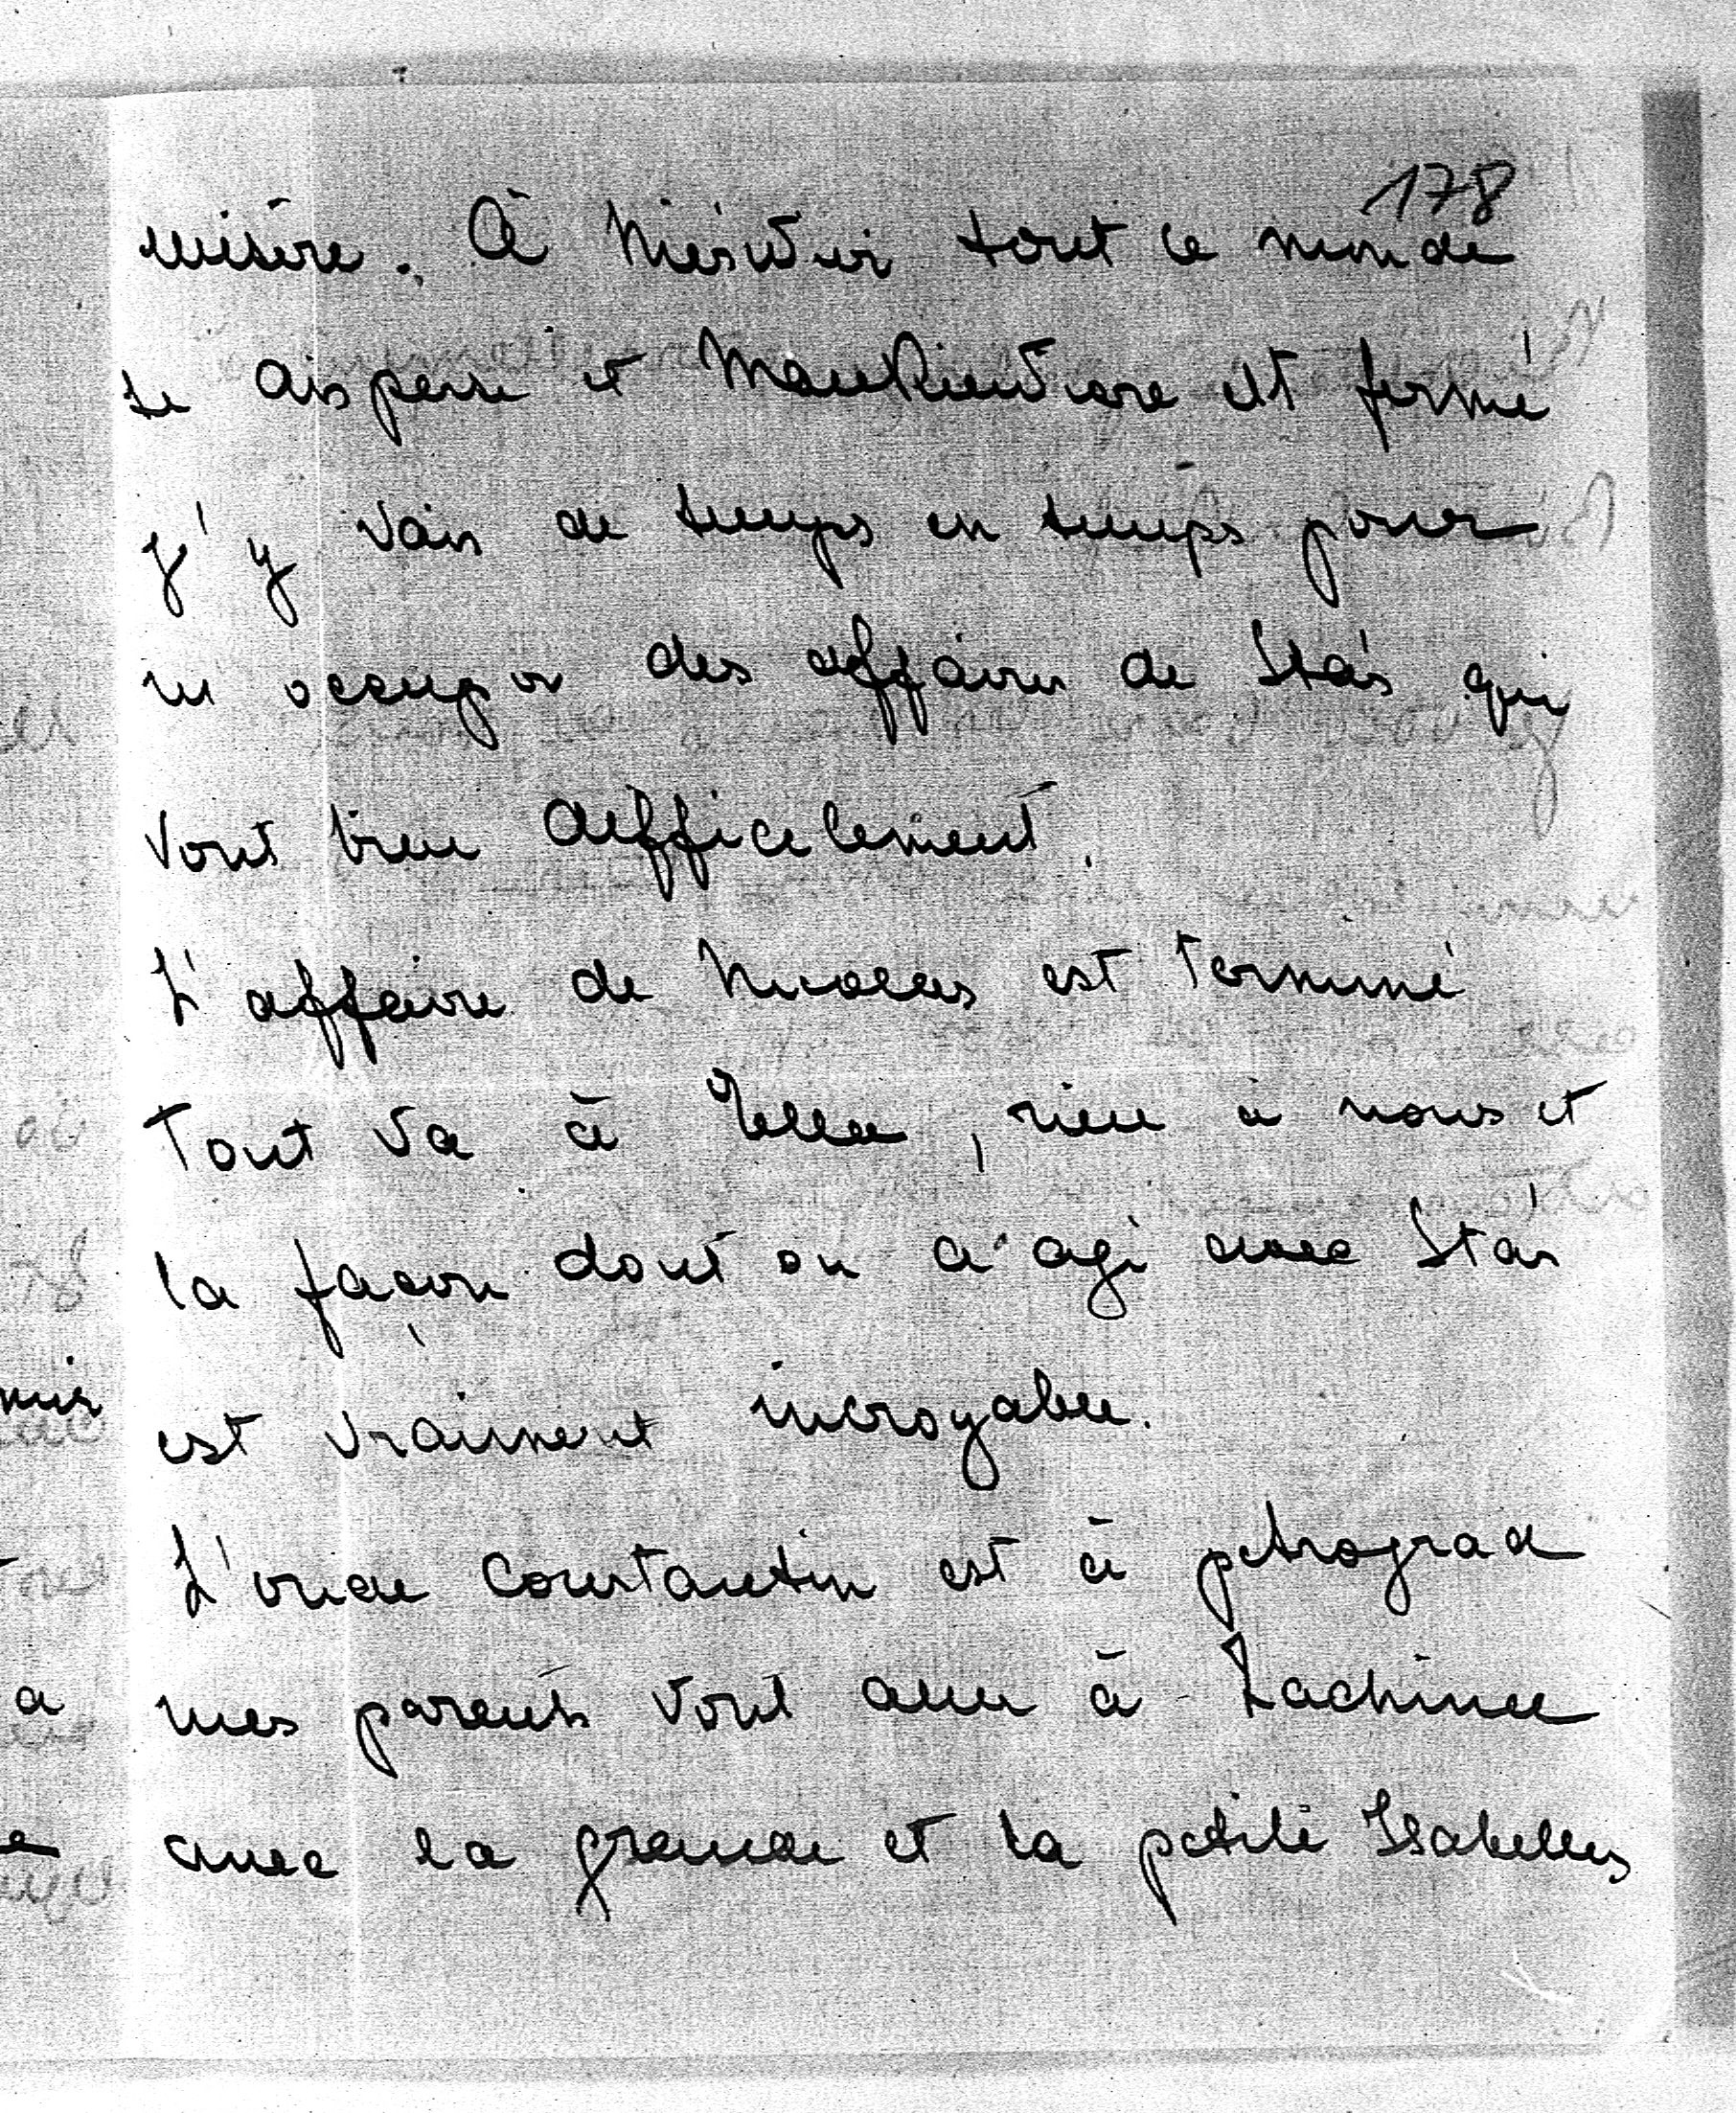 178
misère. À Nieśwież tout le monde
se disperse et Mankiewicze est fermé
j'y vais de temps en temps pour
m occuper des affaires de Staś qui
vont bien difficilement.
L'affaire de Nicolas est terminé
Tout va à , rien à nous et
la façon dont on a agi avec Staś
est vraiment incroyable.
L'oncle Constantin est à petrograd
mes parents vont aller à
avec la grande et la petite Isabelles